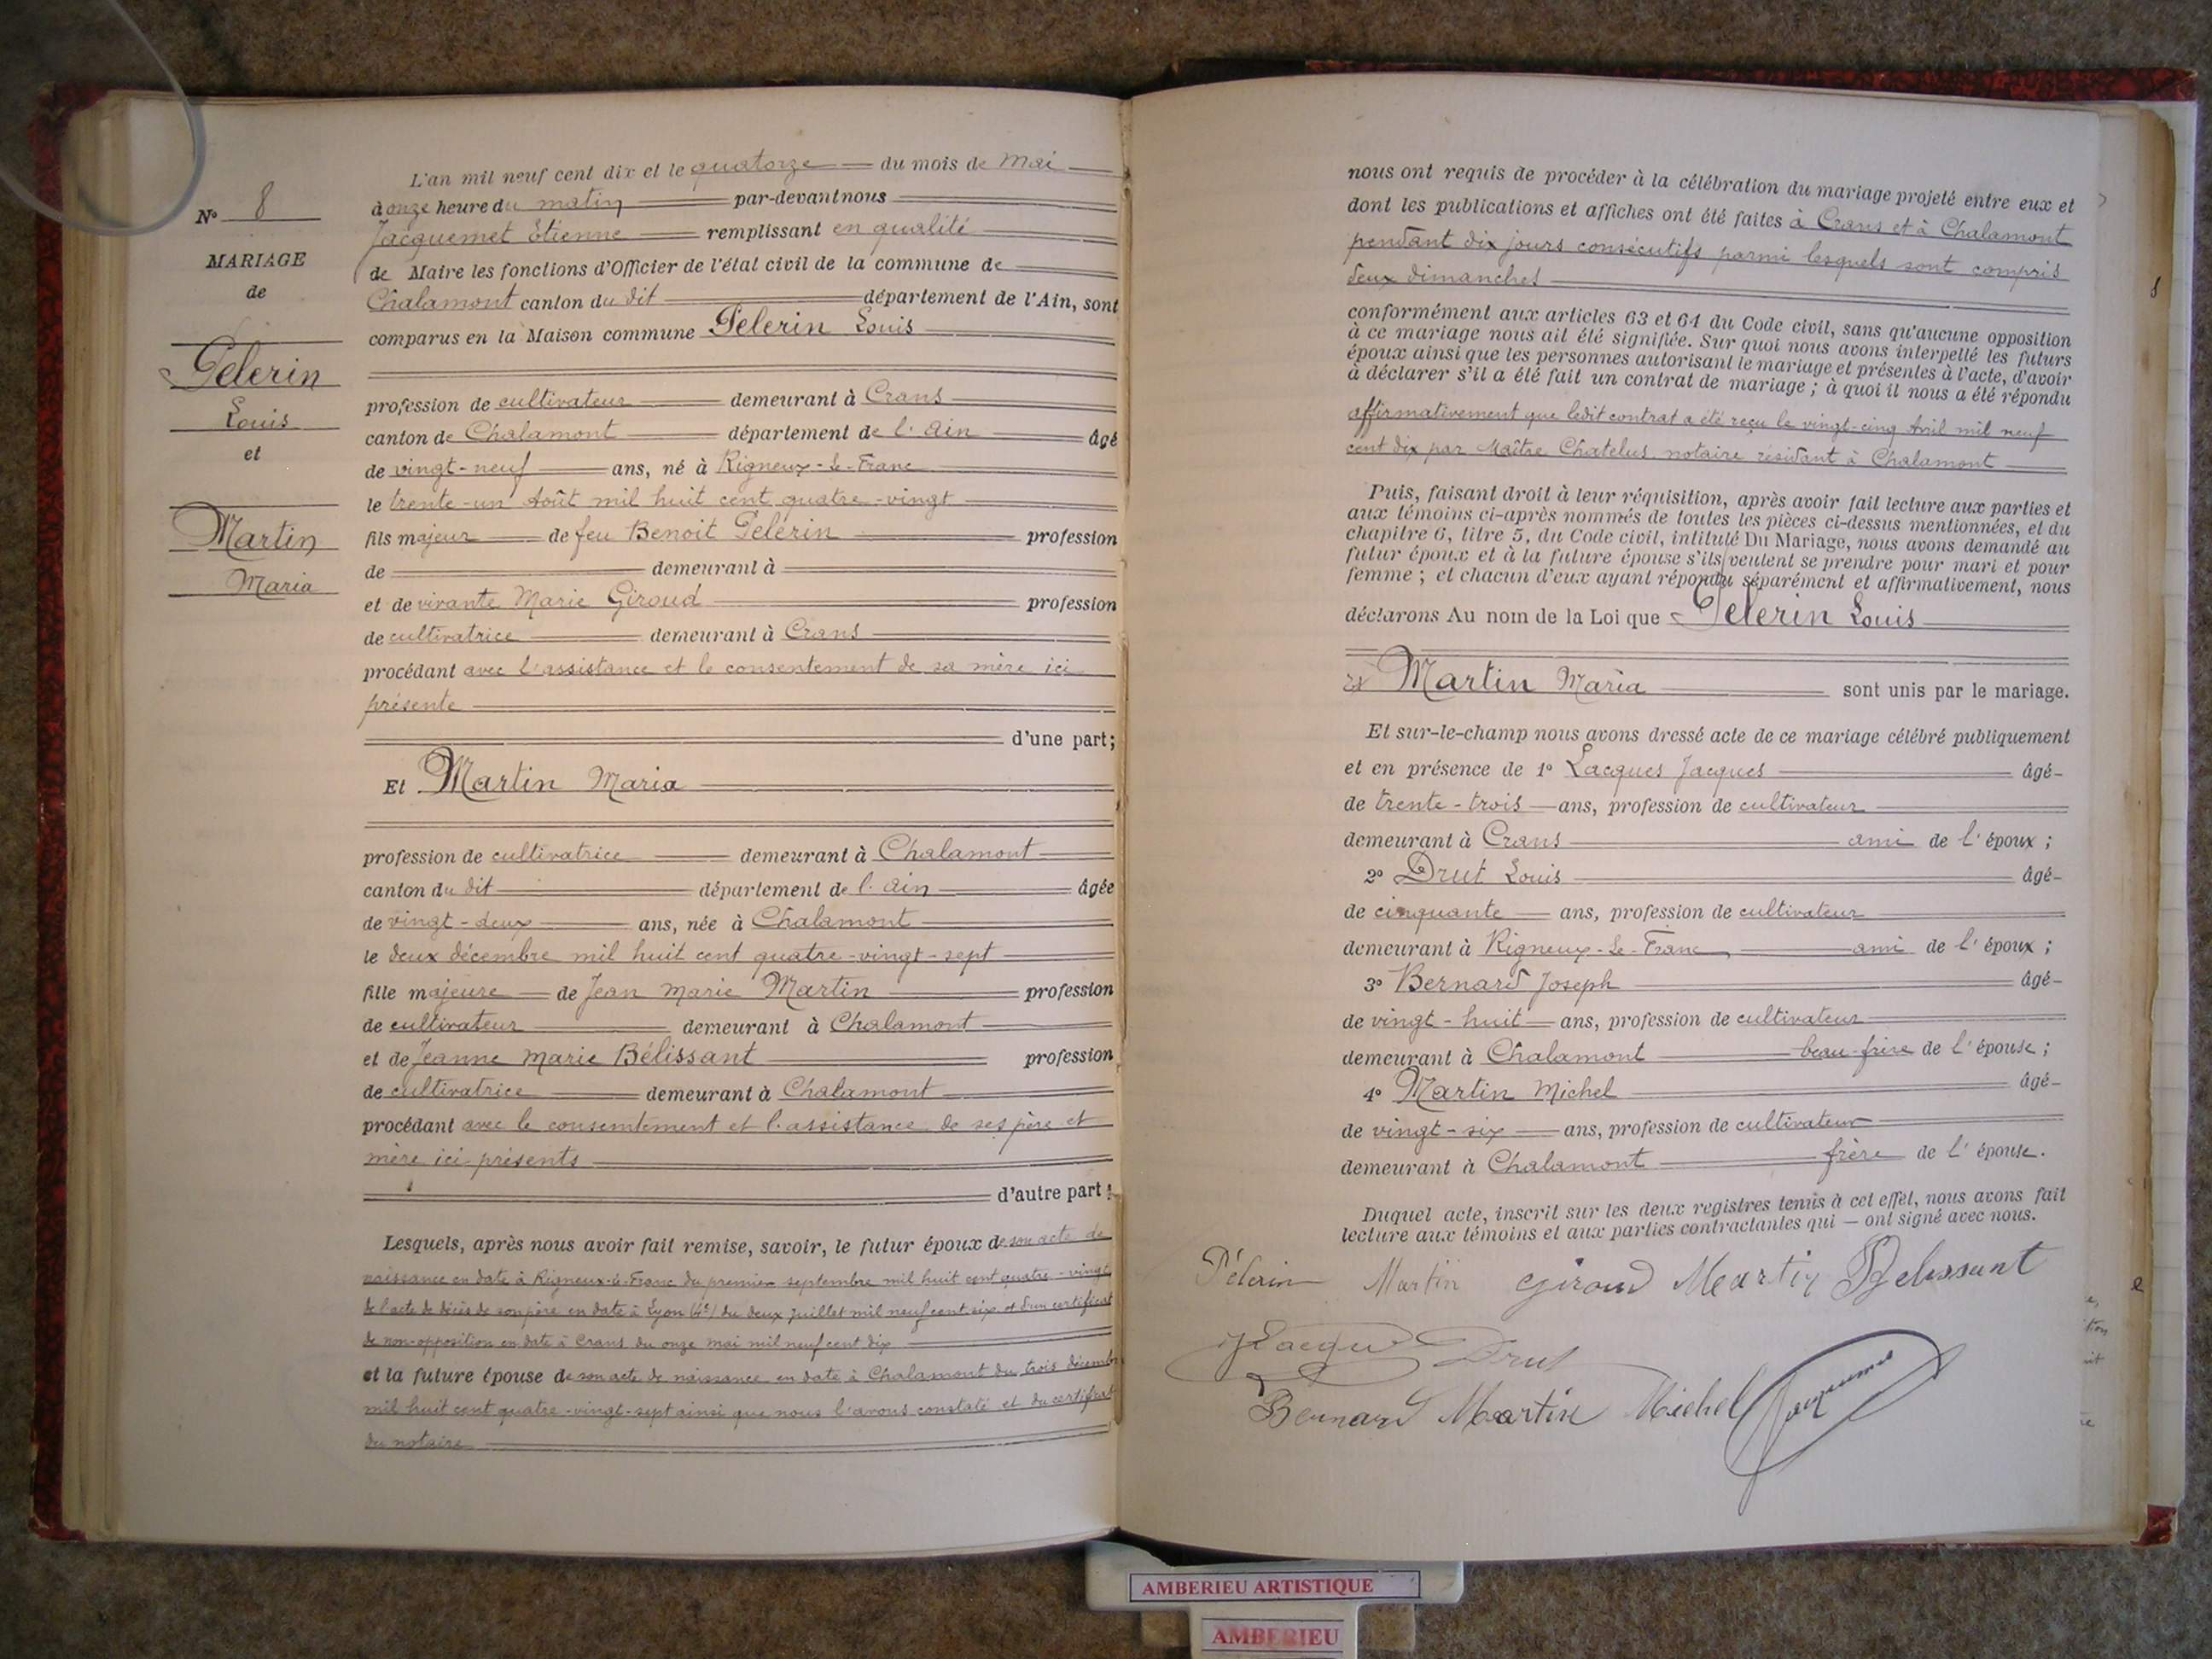 N° 8
MARIAGE
de
Pelerin
Louis
et
Martin
Maria
L'an mil neuf cent dix et le quatorze du mois de Mai
à onze heure du matin par-devant nous
Jacquemet Etienne remplissant en qualité
de Maire les fonctions d'Officier de l'état civil de la commune de
Chalamont canton du dit département de l'Ain, sont
comparus en la Maison commune Pelerin Louis
profession de cultivateur demeurant à Crans
canton de Chalamont département de l'Ain âgé
de vingt-neuf ans, né à Rigneux-le-Franc
le trente-un Août mil huit cent quatre-vingt
fils majeur de feu Benoit Pelerin profession
de demeurant à
et de vivante Marie Giroud profession
de cultivatrice demeurant à Crans
procédant avec l'assistance et le consentement de sa mère ici
présente
d'une part;
Et Martin Maria
profession de cultivatrice demeurant à Chalamont
canton du dit département de l'Ain âgée
de vingt-deux ans, née à Chalamont
le deux décembre mil huit cent quatre-vingt-sept
fille majeure de Jean Marie Martin profession
de cultivateur demeurant à Chalamont
et de Jeanne Marie Bélissant profession
de cultivatrice demeurant à Chalamont
procédant avec le consentement et l'assistance de ses père et
mère ici présents
d'autre part:
Lesquels, après nous avoir fait remise, savoir, le futur époux de son acte de
naissance en date à Rigneux-le-Franc du premier septembre mil huit cent quatre-vingt,
de l'acte de décès de son père en date à Lyon (4e) du deux juillet mil neuf cent six et d'un certificat
de non-opposition en date à Crans du onze mai mil neuf cent dix
et la future épouse de son acte de naissance en date à Chalamont du trois décembre
mil huit cent quatre-vingt-sept ainsi que nous l'avons constaté et du certificat
du notaire
nous ont requis de procéder à la célébration du mariage projeté entre eux et
dont les publications et affiches ont été faites à Crans et à Chalamont
pendant dix jours consécutifs parmi lesquels sont compris
deux dimanches
conformément aux articles 63 et 64 du Code civil, sans qu'aucune opposition
à ce mariage nous ait été signifiée. Sur quoi nous avons interpellé les futurs
époux ainsi que les personnes autorisant le mariage et présentes à l'acte, d'avoir
à déclarer s'il a été fait un contrat de mariage; à quoi il nous a été répondu
affirmativement que ledit contrat a été reçu le vingt-cinq Avril mil neuf
cent dix par Maître Chatelus notaire résidant à Chalamont
Puis, faisant droit à leur réquisition, après avoir fait lecture aux parties et
aux témoins ci-après nommés de toutes les pièces ci-dessus mentionnées, et du
chapitre 6, titre 5, du Code civil, intitulé Du Mariage, nous avons demandé au
futur époux et à la future épouse s'ils veulent se prendre pour mari et pour
femme; et chacun d'eux ayant répondu séparément et affirmativement, nous
déclarons Au nom de la Loi que Pelerin Louis
et Martin Maria sont unis par le mariage.
Et sur-le-champ nous avons dressé acte de ce mariage célébré publiquement
et en présence de 1° Lacques Jacques âgé
de trente-trois ans, profession de cultivateur
demeurant à Crans ami de l'époux;
2° Drut Louis âgé
de cinquante ans, profession de cultivateur
demeurant à Rigneux-le-Franc ami de l'époux;
3° Bernard Joseph âgé
de vingt-huit ans, profession de cultivateur
demeurant à Chalamont beau-frère de l'épouse;
4° Martin Michel âgé
de vingt-six ans, profession de cultivateur
demeurant à Chalamont frère de l'épouse.
Duquel acte, inscrit sur les deux registres tenus à cet effet, nous avons fait
lecture aux témoins et aux parties contractantes qui — ont signé avec nous.
Pélerin Martin Giroud Martin Belissant
J Lacques Drut
Bernard Martin Michel Jacquemet
AMBERIEU ARTISTIQUE
AMBERIEU